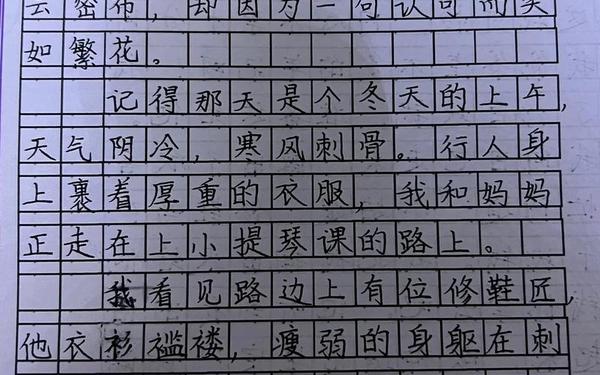 云密布，却因为一句认可而笑
如繁花。
记得那天是个冬天的上午，
天气阴冷，寒风刺骨。行人身
上裹着厚重的衣服，我和妈妈
正走在上小提琴课的路上。
我看见路边上有位修鞋匠，
他衣衫褴褛，瘦弱的身躯在刺